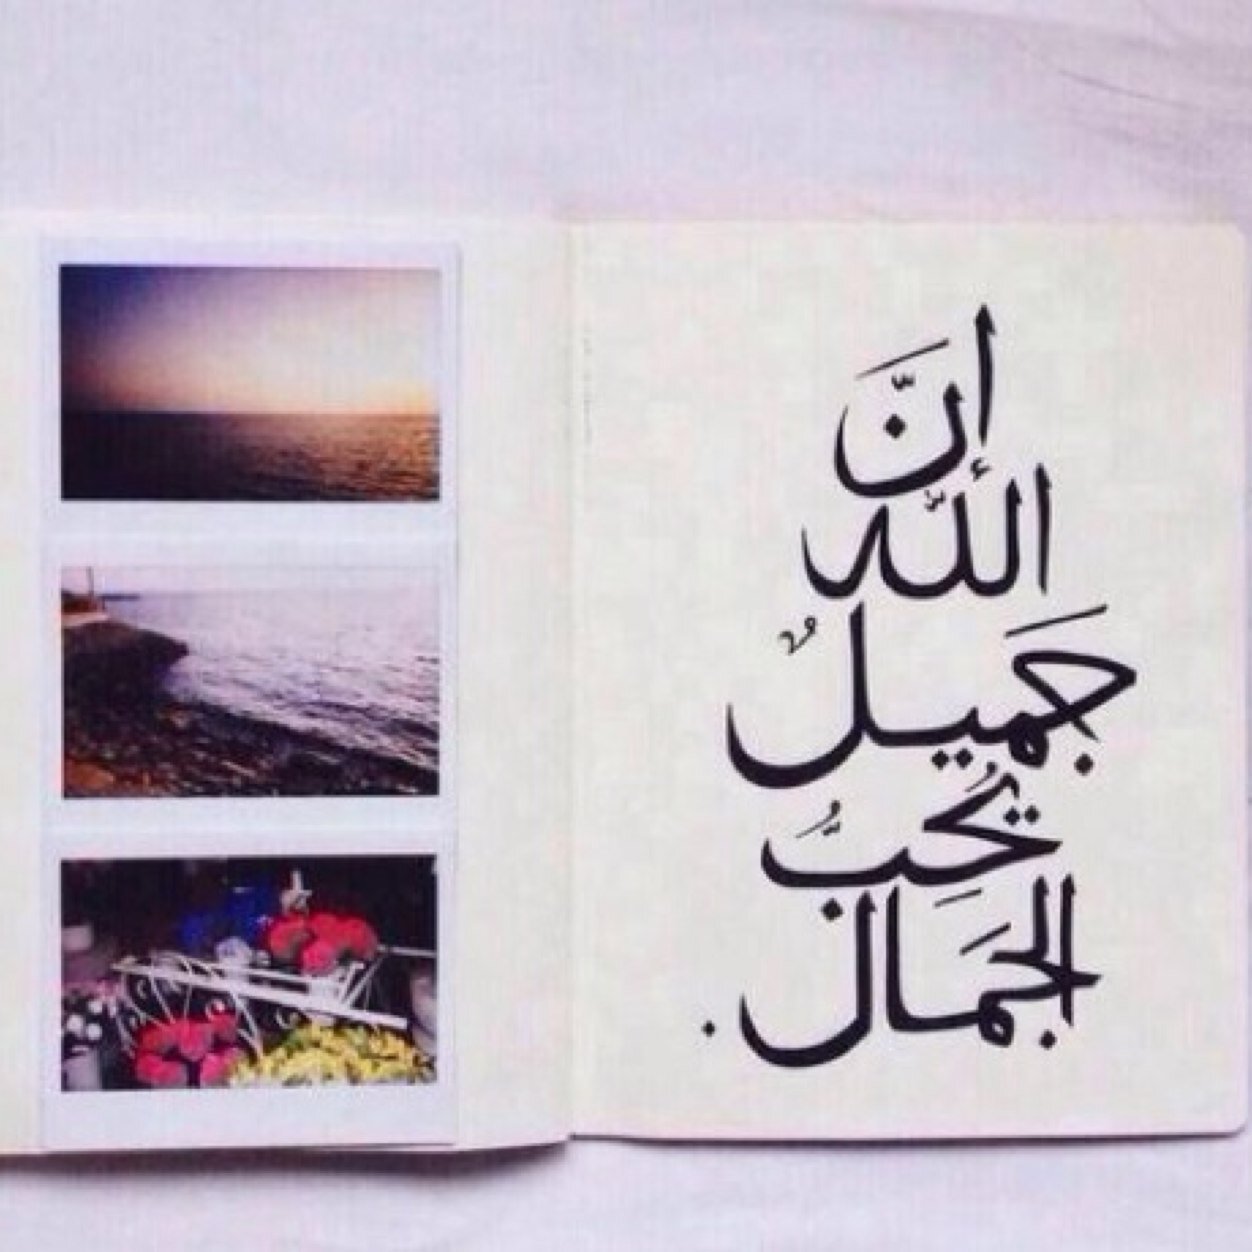 إنَّ
اللّه
جَميلٌ
يُحِبُّ
الجَمال.